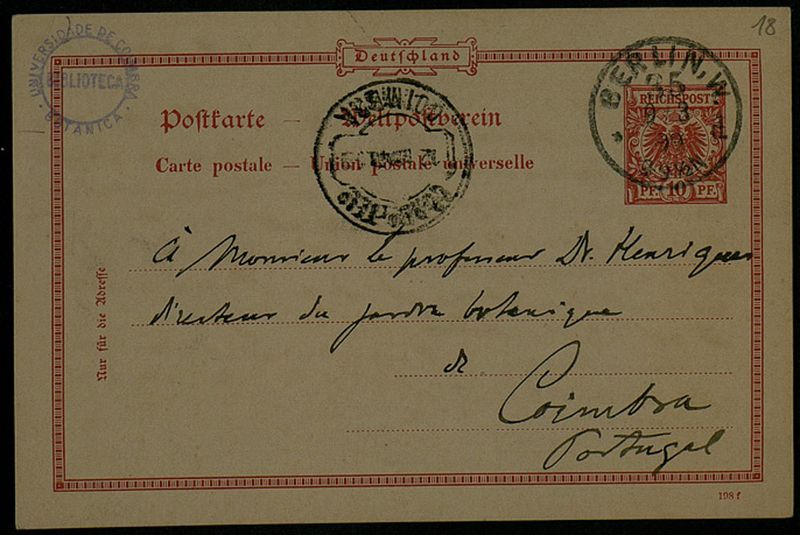 18
UNIVERSIDADE DE COIMBRA
BIBLIOTECA
BOTANICA
Deutschland
BERLIN, W.
35
REICHSPOST
10
PF. PF.
Postkarte — Weltpostverein
Carte postale — Union postale universelle
Nur für die Adresse
À Monsieur le professeur Dr. Henriques
directeur du jardin botanique
de
Coimbra
Portugal
198 f